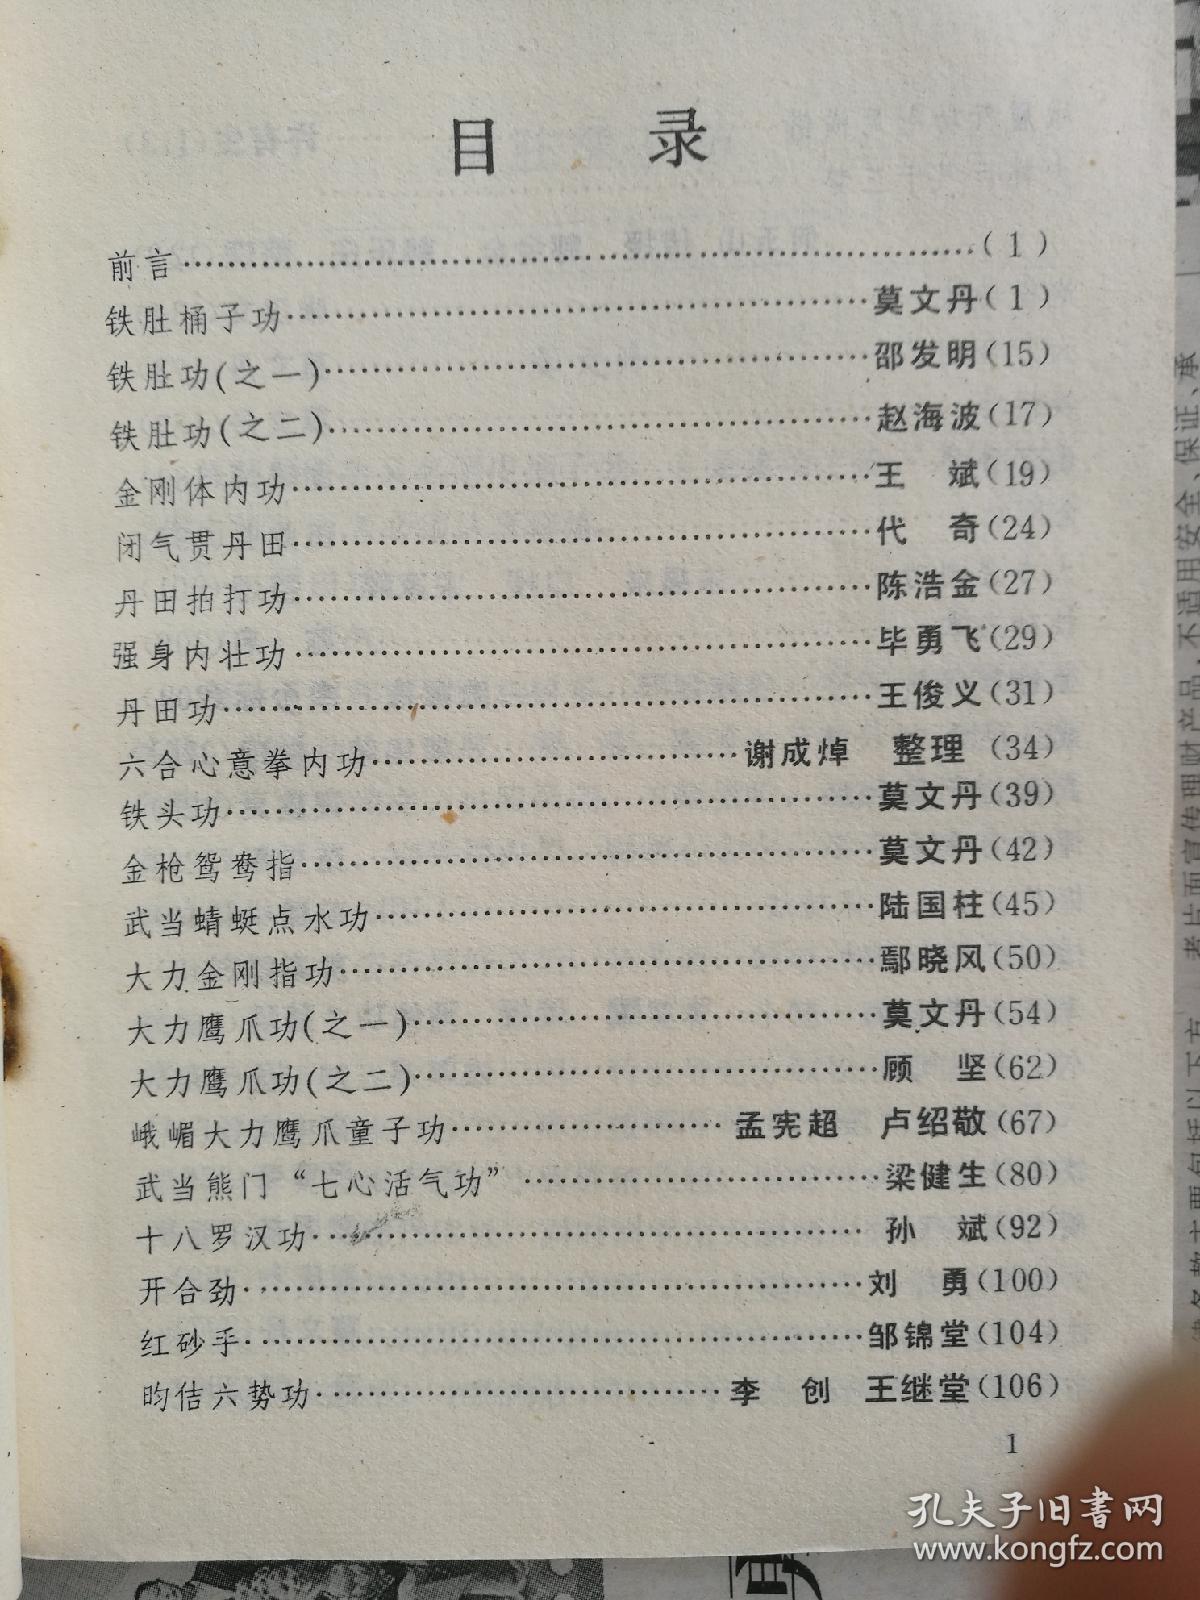 目 录
前言……(1)
铁肚桶子功……莫文丹(1)
铁肚功(之一)……邵发明(15)
铁肚功(之二)……赵海波(17)
金刚体内功……王 斌(19)
闭气贯丹田……代 奇(24)
丹田拍打功……陈浩金(27)
强身内壮功……毕勇飞(29)
丹田功……王俊义(31)
六合心意拳内功……谢成焯 整理 (34)
铁头功……莫文丹(39)
金枪鸳鸯指……莫文丹(42)
武当蜻蜓点水功……陆国柱(45)
大力金刚指功……鄢晓风(50)
大力鹰爪功(之一)……莫文丹(54)
大力鹰爪功(之二)……顾 坚(62)
峨嵋大力鹰爪童子功……孟宪超 卢绍敬(67)
武当熊门“七心活气功”……梁健生(80)
十八罗汉功……孙 斌(92)
开合劲……刘 勇(100)
红砂手……邹锦堂(104)
昀佶六势功……李 创 王继堂(106)
1
孔夫子旧書网
www.kongfz.com